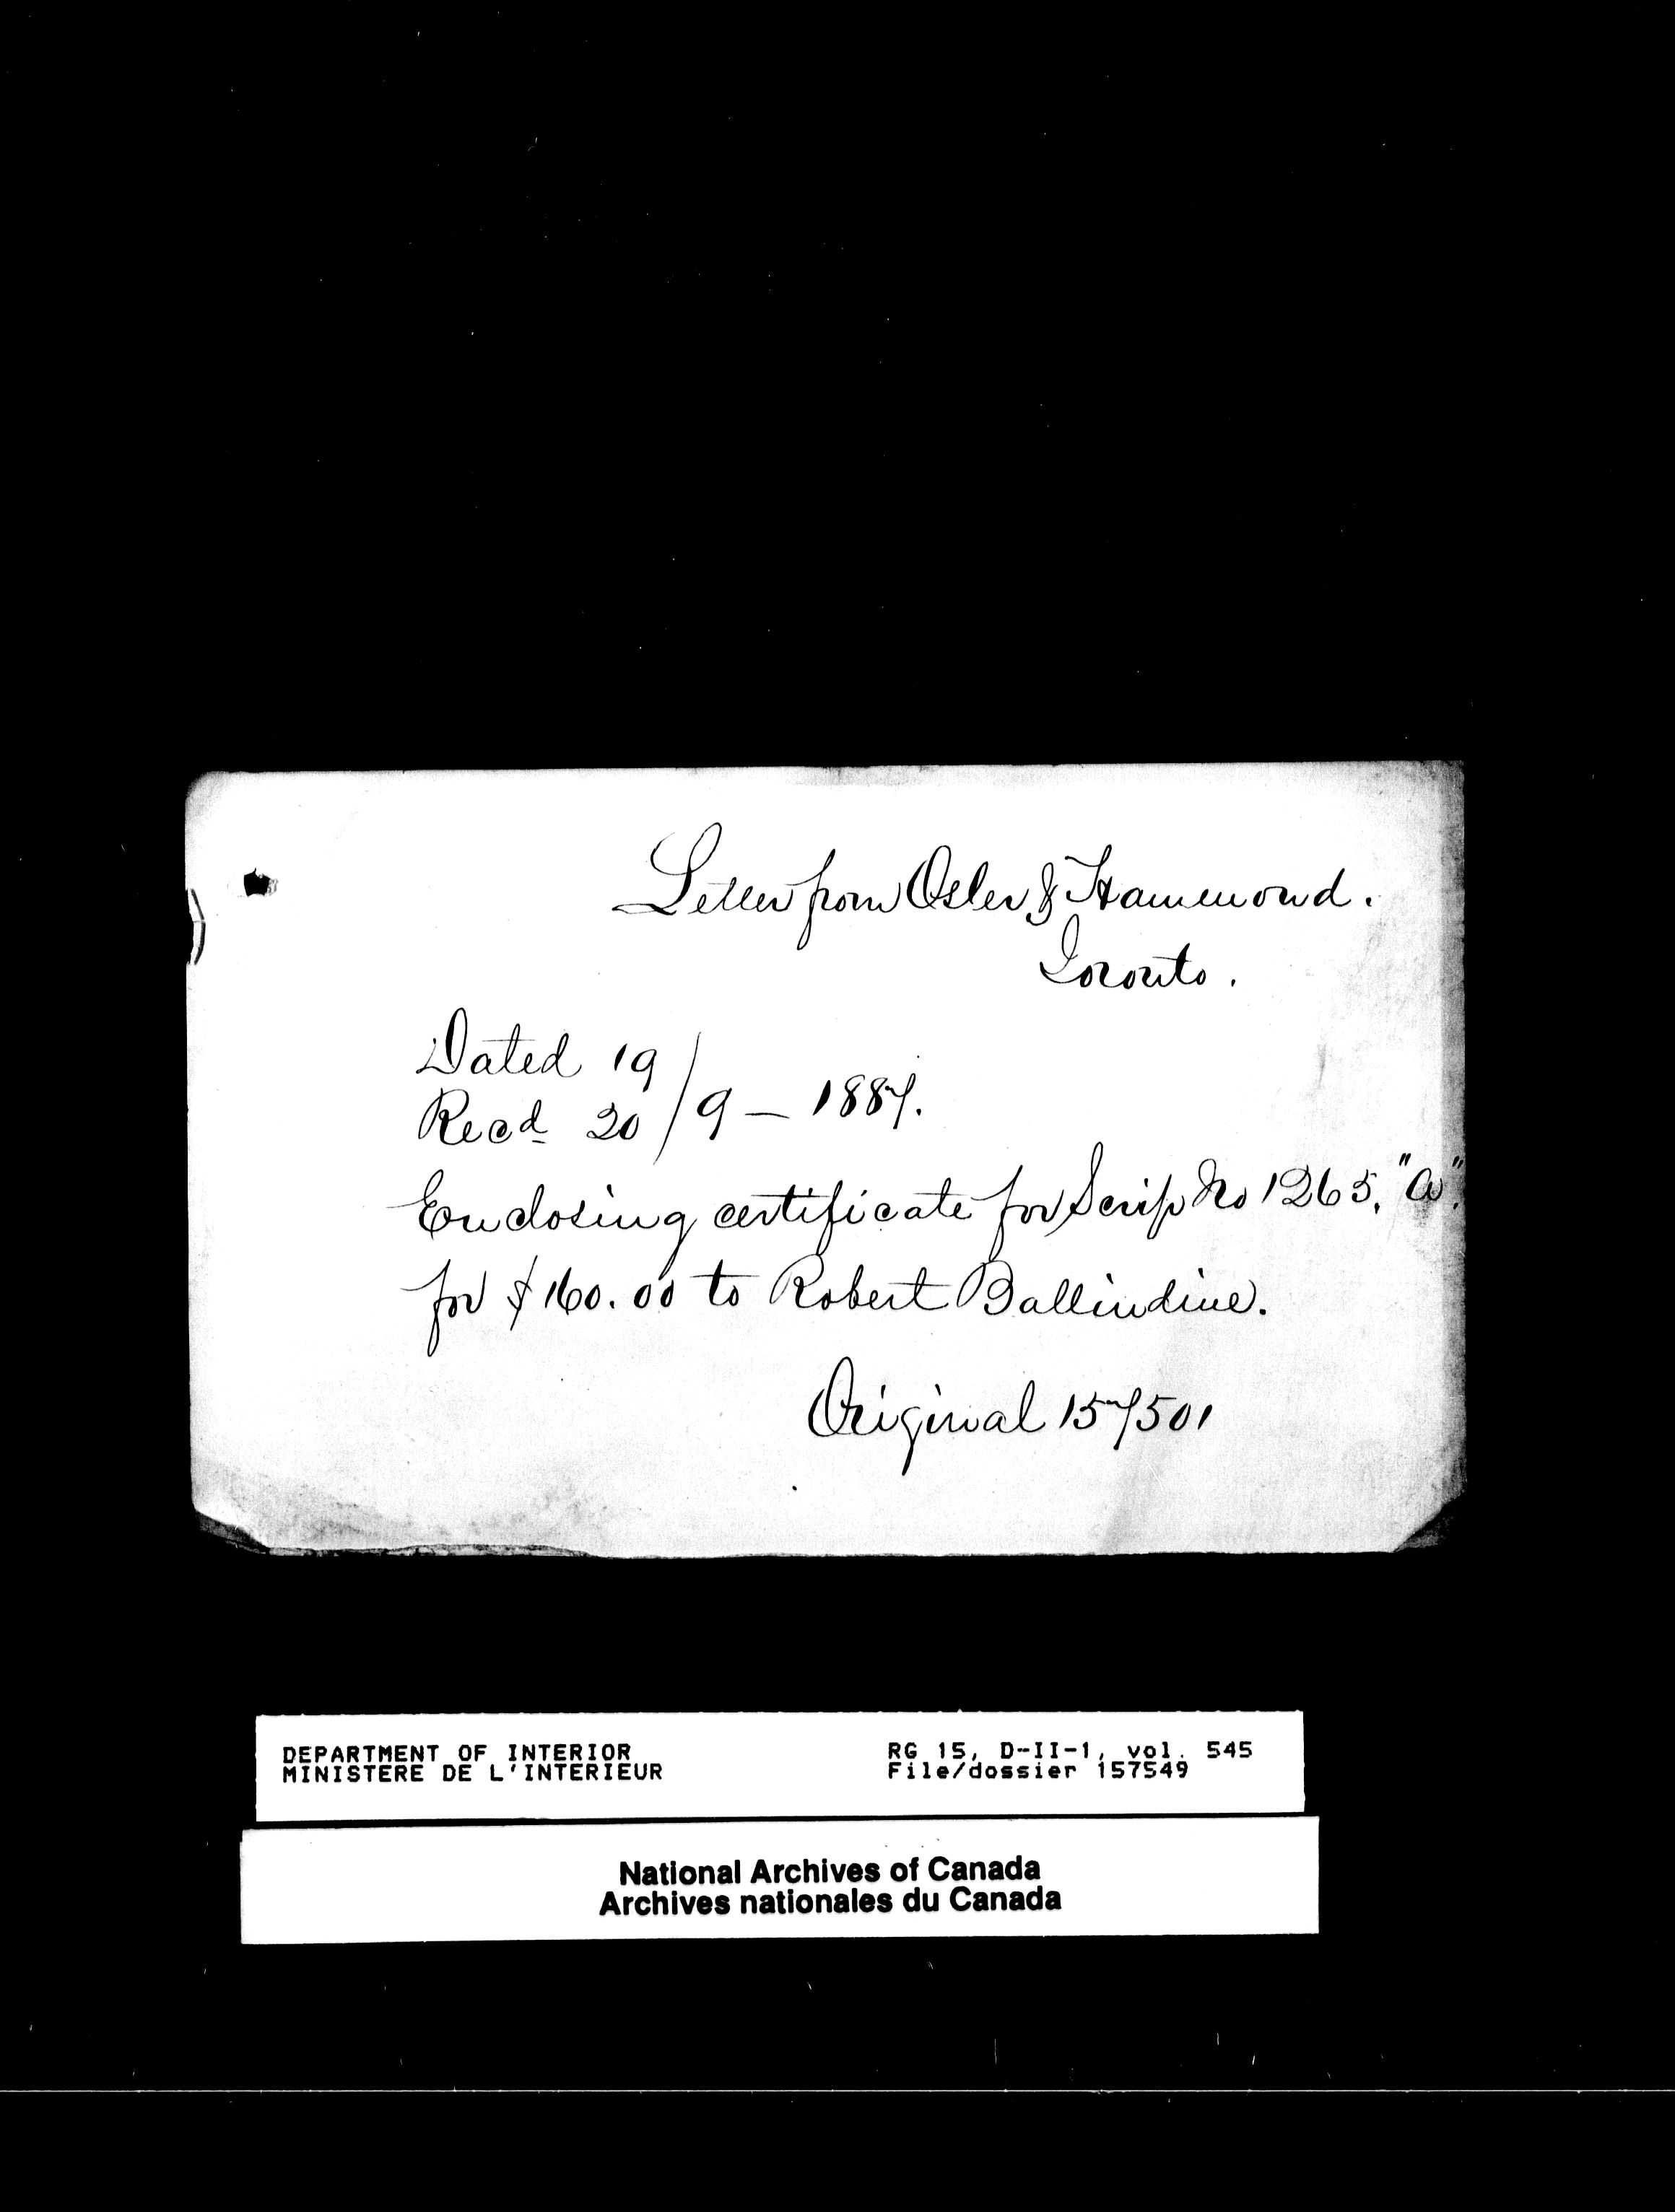 Letter from Osler & Hammond.
Toronto.
Dated 19
Recd 20 / 9 — 1887.
Enclosing certificate for Scrip No 1265. "A".
for $160.00 to Robert Ballindine.
Original 157501
DEPARTMENT OF INTERIOR
MINISTERE DE L'INTERIEUR
RG 15, D-II-1, vol. 545
File/dossier 157549
National Archives of Canada
Archives nationales du Canada